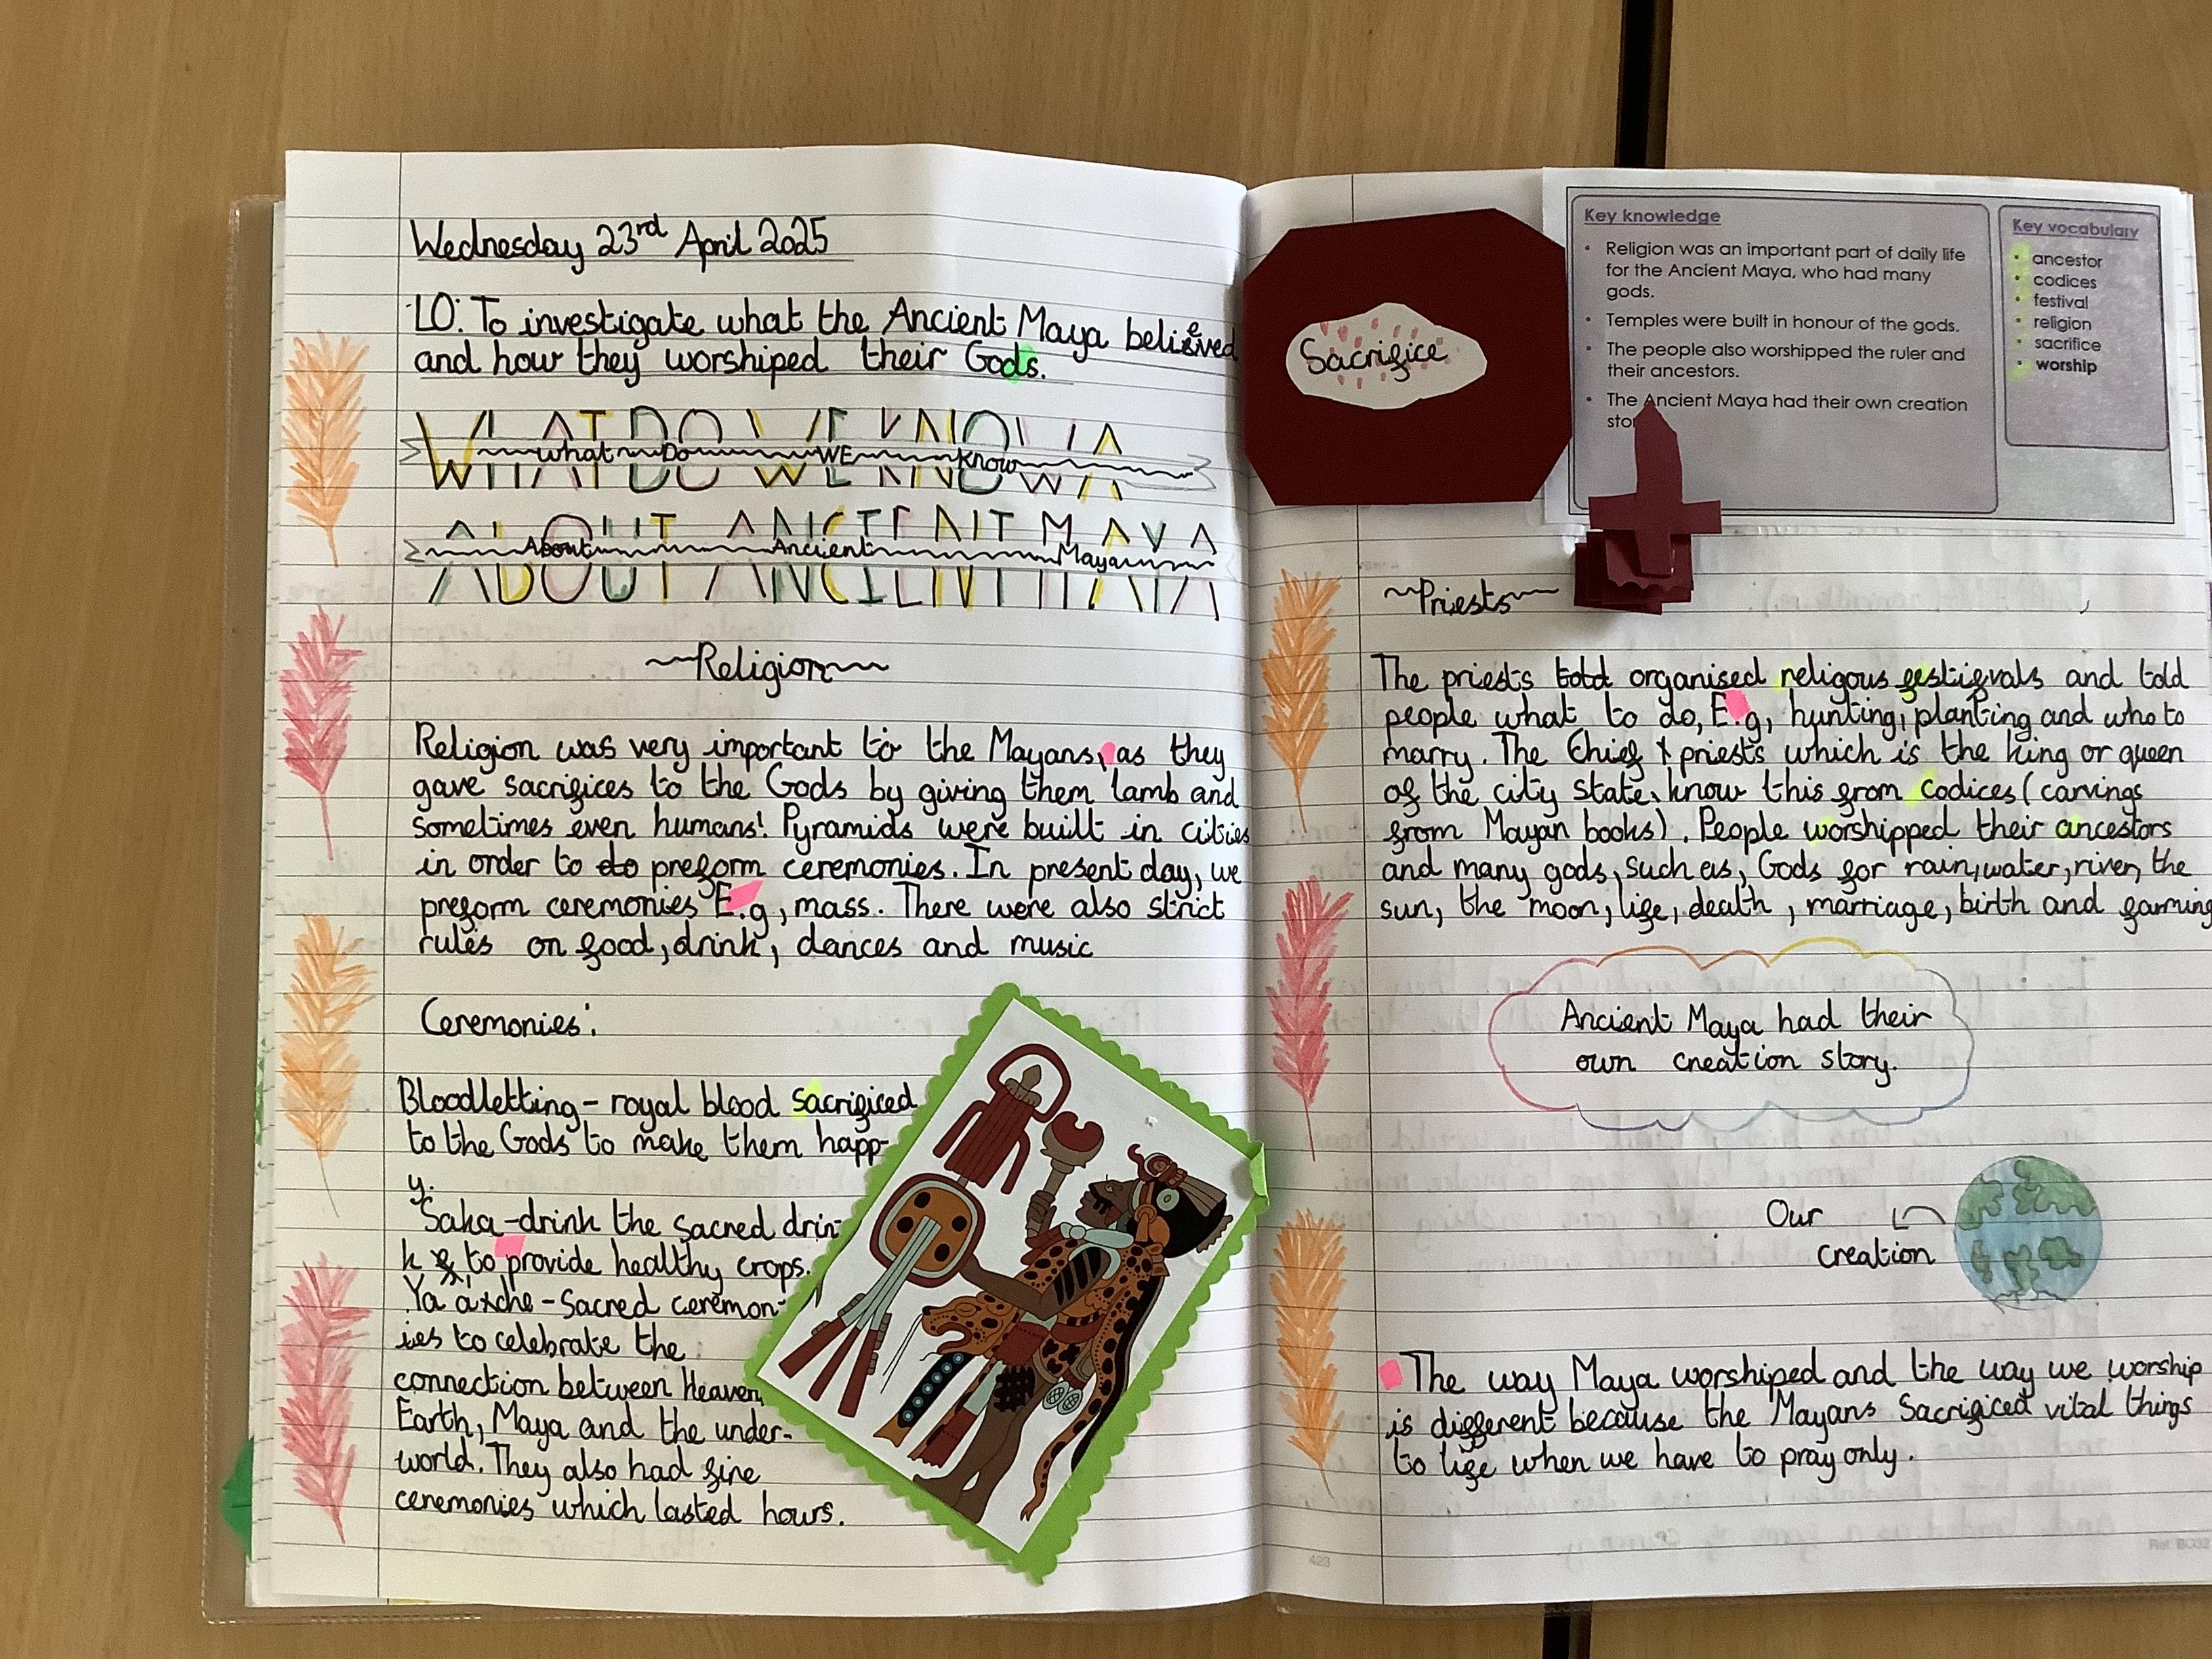 Wednesday 23rd April 2025
LO: To investigate what the Ancient Maya believed
and how they worshiped their Gods.
WHAT DO WE KNOW
What Do WE Know
ABOUT ANCIENT MAYA
About Ancient Maya
~Religion~
Religion was very important to the Mayans, as they
gave sacrifices to the Gods by giving them lamb and
sometimes even humans! Pyramids were built in cities
in order to do preform ceremonies. In present day, we
preform ceremonies E.g, mass. There were also strict
rules on food, drink, dances and music
Ceremonies:
Bloodletting - royal blood sacrificed
to the Gods to make them happ-
y.
Saka - drink the sacred drin-
k to provide healthy crops.
Ya'axche - Sacred ceremon-
ies to celebrate the
connection between Heaven,
Earth, Maya and the under-
world. They also had fire
ceremonies which lasted hours.
Sacrifice
Key knowledge
• Religion was an important part of daily life
for the Ancient Maya, who had many
gods.
• Temples were built in honour of the gods.
• The people also worshipped the ruler and
their ancestors.
• The Ancient Maya had their own creation
Key vocabulary
• ancestor
• codices
• festival
• religion
• sacrifice
• worship
~Priests~
The priests told organised religous festievals and told
people what to do, E.g, hunting, planting and who to
marry. The Chief priests which is the king or queen
of the city state, know this from codices (carvings
from Mayan books). People worshipped their ancestors
and many gods, such as, Gods for rain, water, river, the
sun, the moon, life, death, marriage, birth and farming
Ancient Maya had their
own creation story.
Our
creation
The way Maya worshiped and the way we worship
is different because the Mayans Sacrificed vital things
to life when we have to pray only.
423